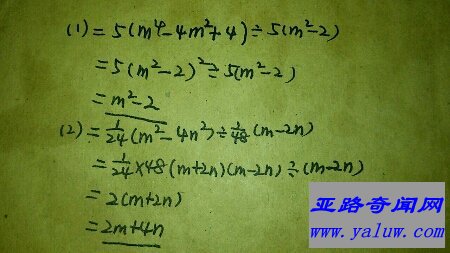 (1) = 5(m⁴-4m²+4)÷5(m²-2)
= 5(m²-2)²÷5(m²-2)
= m²-2
(2) = 1/24(m²-4n²)÷1/48(m-2n)
= 1/24×48(m+2n)(m-2n)÷(m-2n)
= 2(m+2n)
= 2m+4n
亚路奇闻网
www.yaluw.com